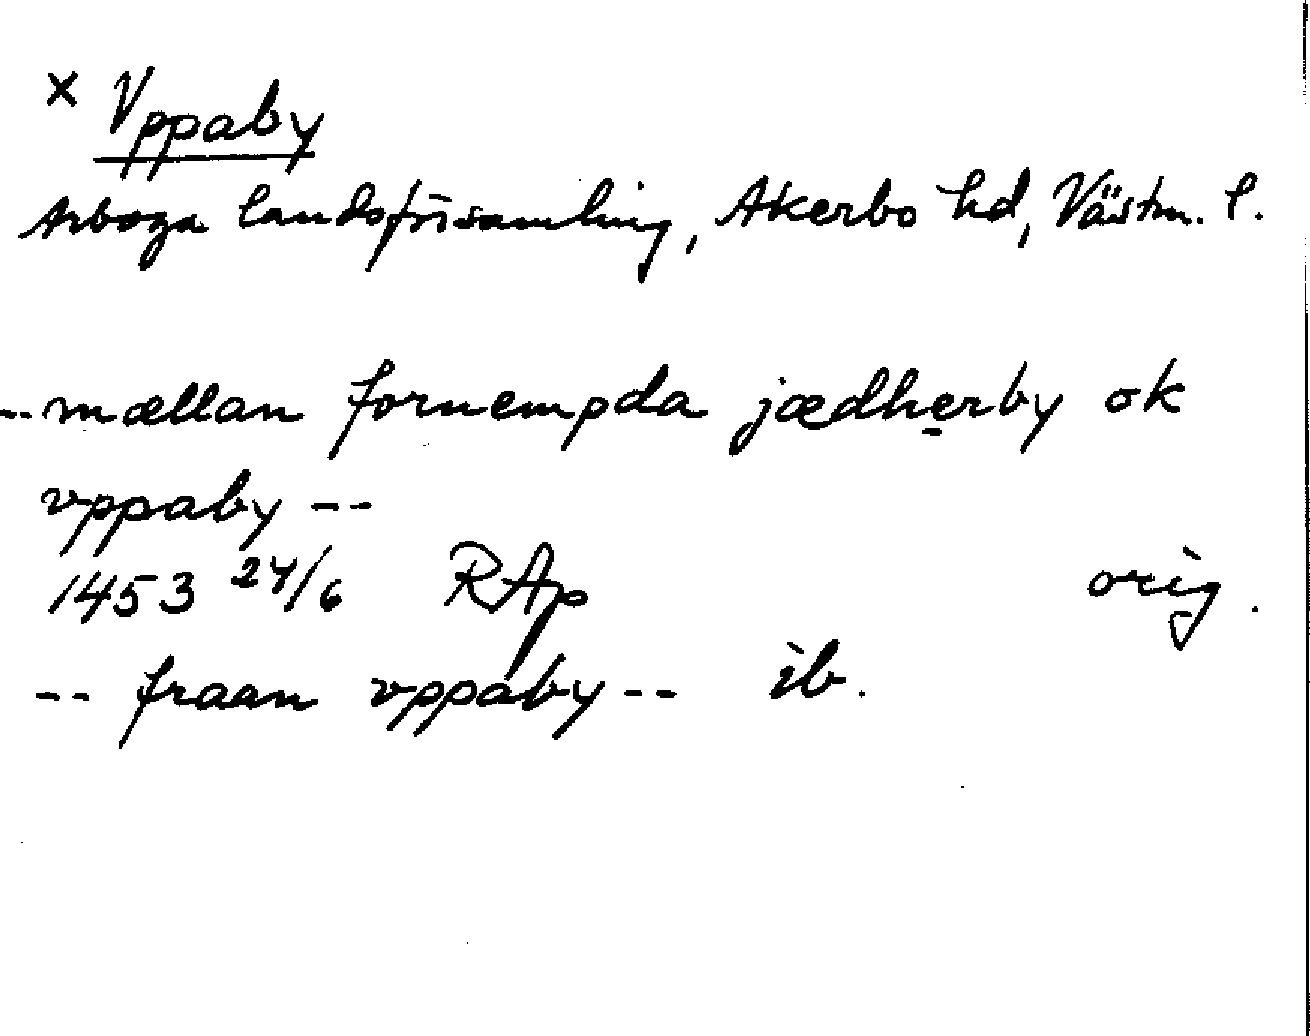 x Vppaby
Arboga landsförsamling, Akerbo hd, Västm. l.
-- mællan fornempda jædherby ok
vppaby --
1453 24/6 RAp orig.
-- fraan vppaby -- ib.